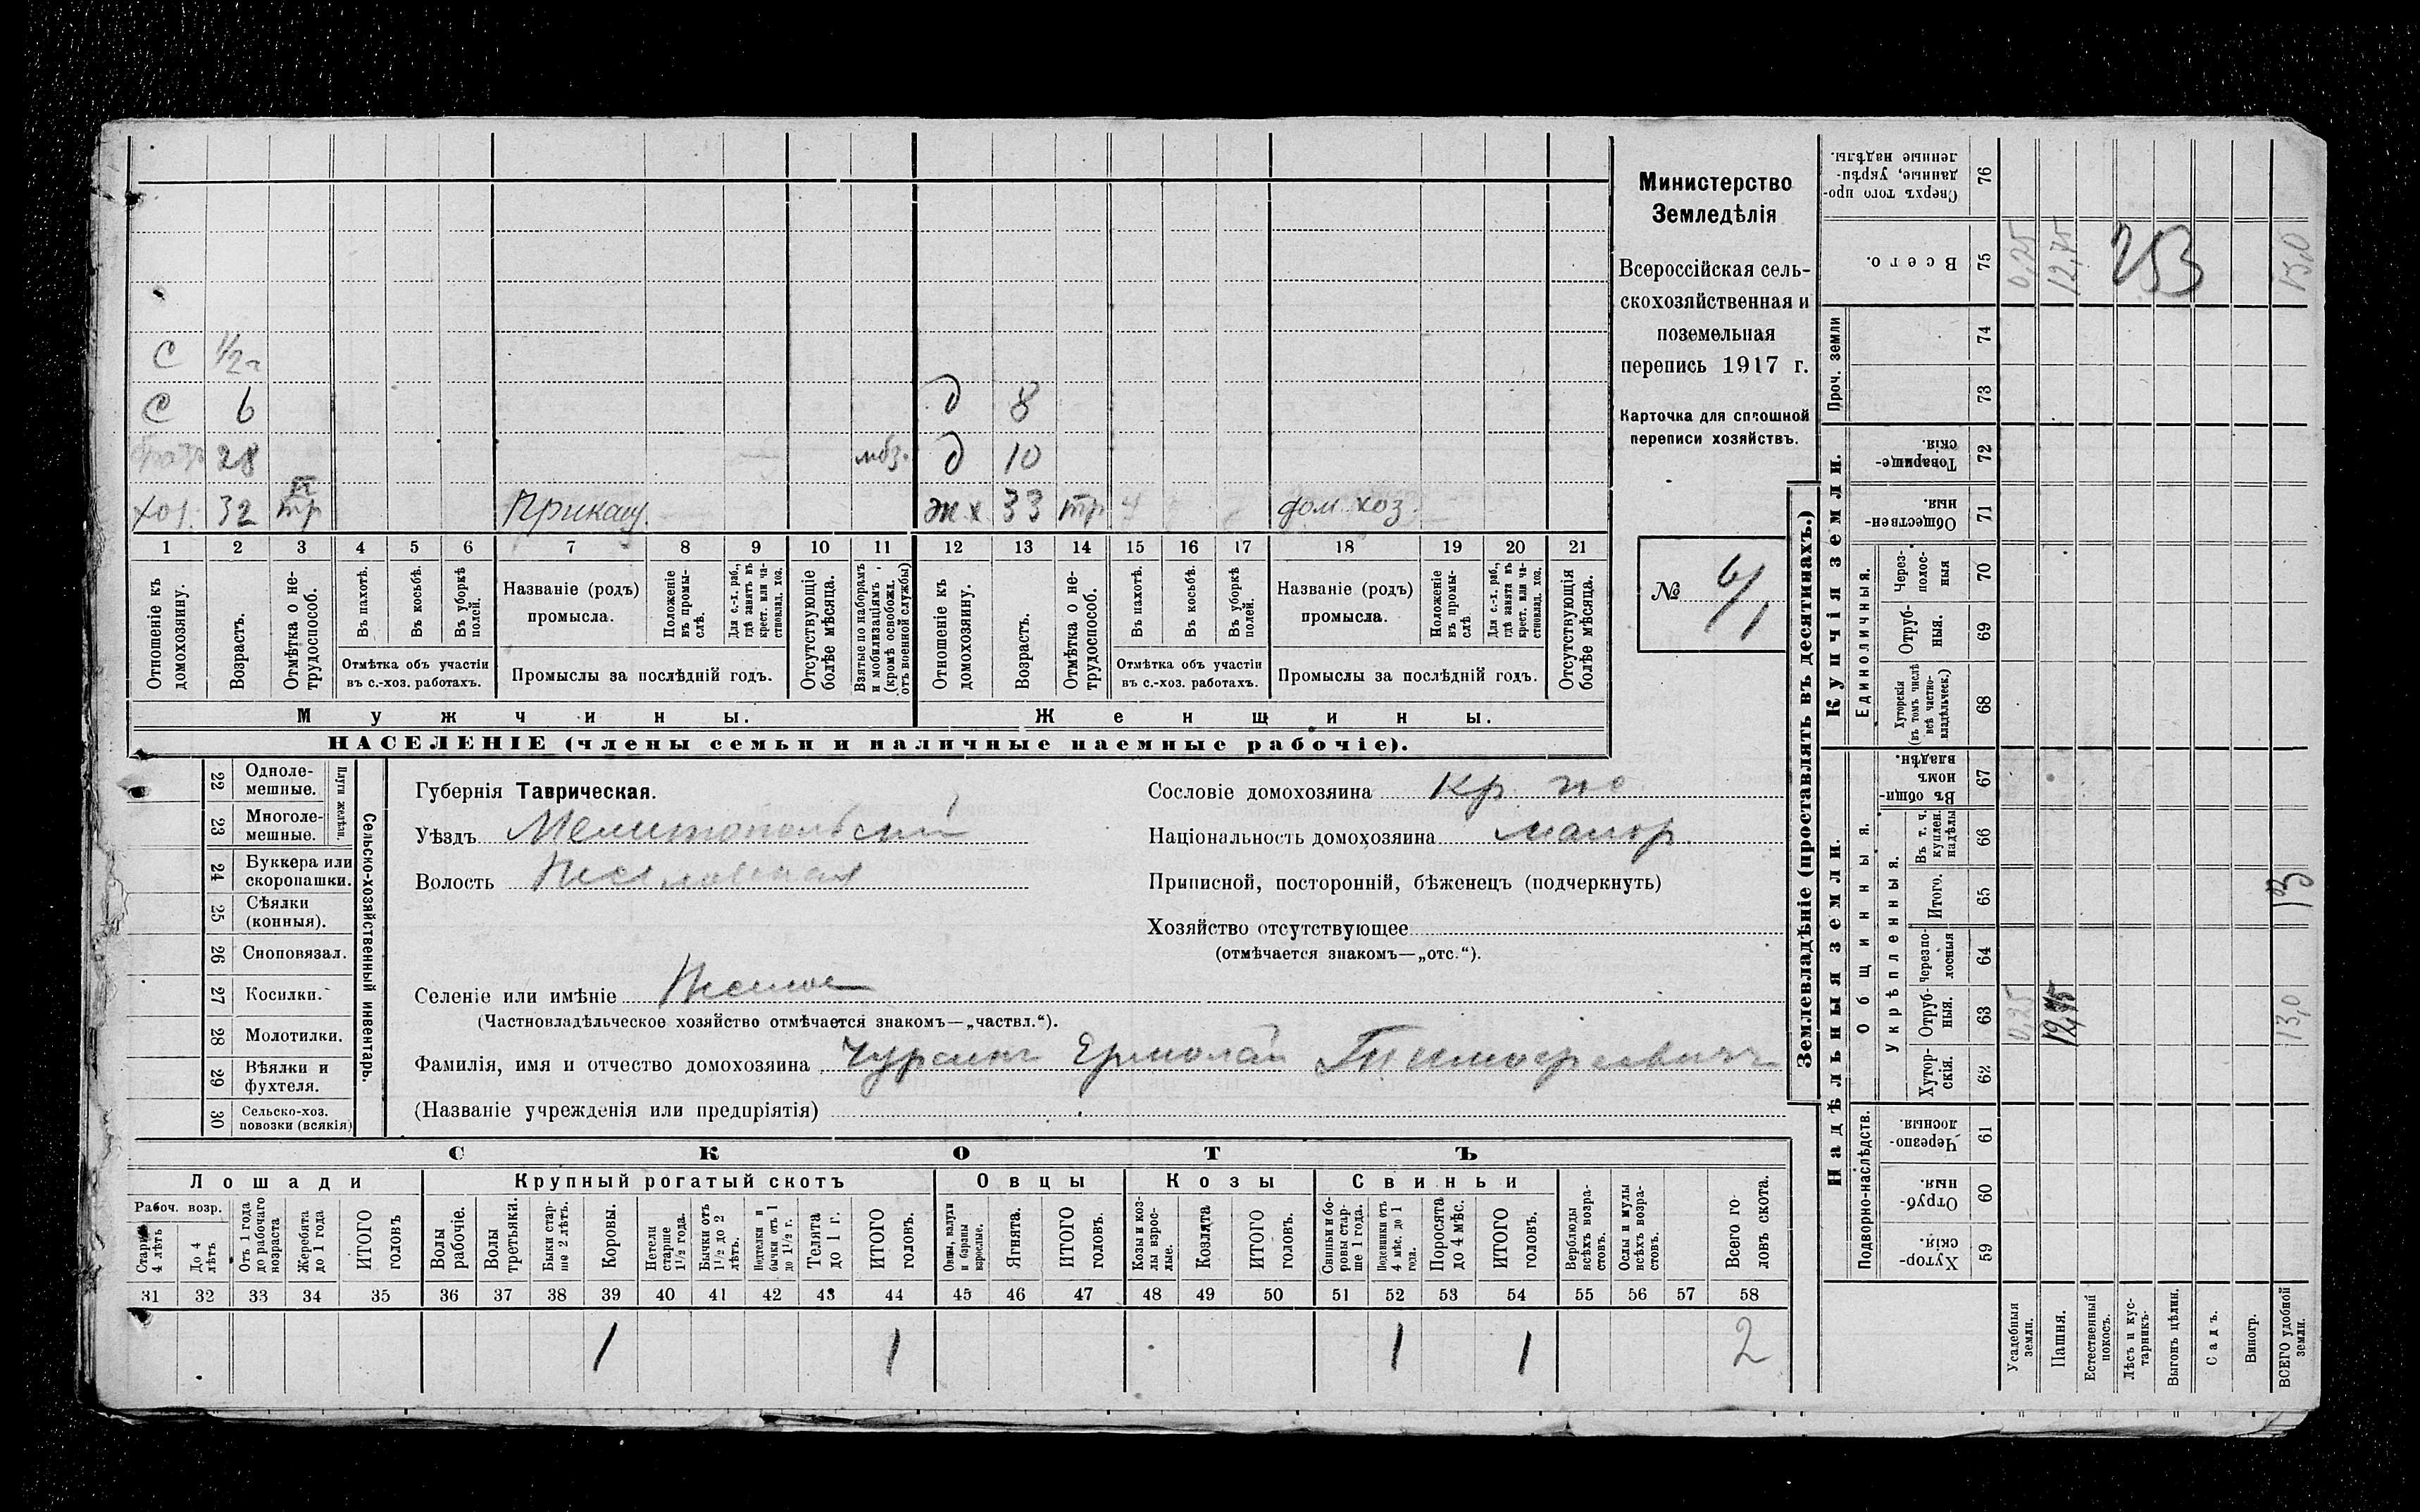 С 1/2 г
С 6 д 8
брат 28 мбз. д 10
хоз. 32 тр Приказч. ж х 33 тр ч дом. хоз.
1 2 3 4 5 6 7 8 9 10 11 12 13 14 15 16 17 18 19 20 21
Отношеніе къ домохозяину.
Возрастъ.
Отмѣтка о нетрудоспособ.
Въ пахотѣ.
Въ косьбѣ.
Въ уборкѣ полей.
Отмѣтка объ участіи
въ с.-хоз. работахъ.
Названіе (родъ)
промысла.
Положеніе въ промыслѣ.
Для с.-х. раб., гдѣ занятъ въ крест. или частновлад. хоз.
Промыслы за послѣдній годъ.
Отсутствующіе болѣе мѣсяца.
Взятые по наборамъ и мобилизаціямъ (кромѣ освобожд. отъ военной службы)
Отношеніе къ домохозяину.
Возрастъ.
Отмѣтка о нетрудоспособ.
Въ пахотѣ.
Въ косьбѣ.
Въ уборкѣ полей.
Отмѣтка объ участіи
въ с.-хоз. работахъ.
Названіе (родъ)
промысла.
Положеніе въ промыслѣ
Для с.-х. раб., гдѣ занята въ крест. или частновлад. хоз.
Промыслы за послѣдній годъ.
Отсутствующія болѣе мѣсяца.
Мужчины.
Женщины.
НАСЕЛЕНІЕ (члены семьи и наличные наемные рабочіе).
Министерство
Земледѣлія
Всероссійская сель-
скохозяйственная и
поземельная
перепись 1917 г.
Карточка для сплошной
переписи хозяйствъ.
№ 6/1
Сельско-хозяйственный инвентарь.
Плуги желѣзн.
22 Одноле-
мешные.
23 Многоле-
мешные.
24 Буккера или
скоропашки.
25 Сѣялки
(конныя).
26 Сноповязал.
27 Косилки.
28 Молотилки.
29 Вѣялки и
фухтеля.
30 Сельско-хоз.
повозки (всякія)
Губернія Таврическая.
Уѣздъ Мелитопольскій
Волость
Селеніе или имѣніе
(Частновладѣльческое хозяйство отмѣчается знакомъ—„частвл.“).
Фамилія, имя и отчество домохозяина Чурсинъ Ермолай Тимофеевичъ
(Названіе учрежденія или предпріятія)
Сословіе домохозяина Кр.
Національность домохозяина малор.
Приписной, посторонній, бѣженецъ (подчеркнуть)
Хозяйство отсутствующее
(отмѣчается знакомъ—„отс.“).
СКОТЪ
Лошади
Крупный рогатый скотъ
Овцы
Козы
Свиньи
Рабоч. возр.
Старше 4 лѣтъ
До 4 лѣтъ
Отъ 1 года до рабочаго возраста
Жеребята до 1 года
ИТОГО головъ
Волы рабочіе.
Волы третьяки.
Быки старше 2 лѣтъ.
Коровы.
Нетели старше 1½ года.
Бычки отъ 1½ до 2 лѣтъ.
Нетелки и бычки отъ 1 до 1½ г.
Телята до 1 г.
ИТОГО головъ.
Овцы, валухи и бараны взрослые.
Ягнята.
ИТОГО головъ.
Козы и козлы взрослые.
Козлята
ИТОГО головъ.
Свиньи и боровы старше 1 года.
Подсвинки отъ 4 мѣс. до 1 года.
Поросята до 4 мѣс.
ИТОГО головъ.
Верблюды всѣхъ возрастовъ.
Ослы и мулы всѣхъ возрастовъ.
Всего головъ скота.
31 32 33 34 35 36 37 38 39 40 41 42 43 44 45 46 47 48 49 50 51 52 53 54 55 56 57 58
1 1 1 1 2
Землевладѣніе (проставлять въ десятинахъ.)
Надѣльныя земли.
Купчія земли.
Проч. земли
Подворно-наслѣдств.
Общинныя.
Укрѣпленныя.
Единоличныя.
Сверхъ того проданные, укрѣпленные надѣлы. 76
Всего. 75 0,25 12,75 253 13,0
74
73
Товарищескія. 72
Общественныя. 71
Черезполосныя 70
Отрубныя. 69
Хуторскія (въ томъ числѣ всѣ частновладѣльческ.) 68
Въ общинномъ владѣн. 67
Въ т. ч. куплен. надѣлы 66
Итого. 65 13
Черезполосныя 64
Отрубныя. 63 0,25 12,75 13,0
Хуторскія. 62
Черезполосныя. 61
Отрубныя. 60
Хуторскія. 59
Усадебныя земли.
Пашня.
Естественный покосъ.
Лѣсъ и кустарникъ.
Выгонъ цѣлин.
Садъ.
Виногр.
ВСЕГО удобной земли.